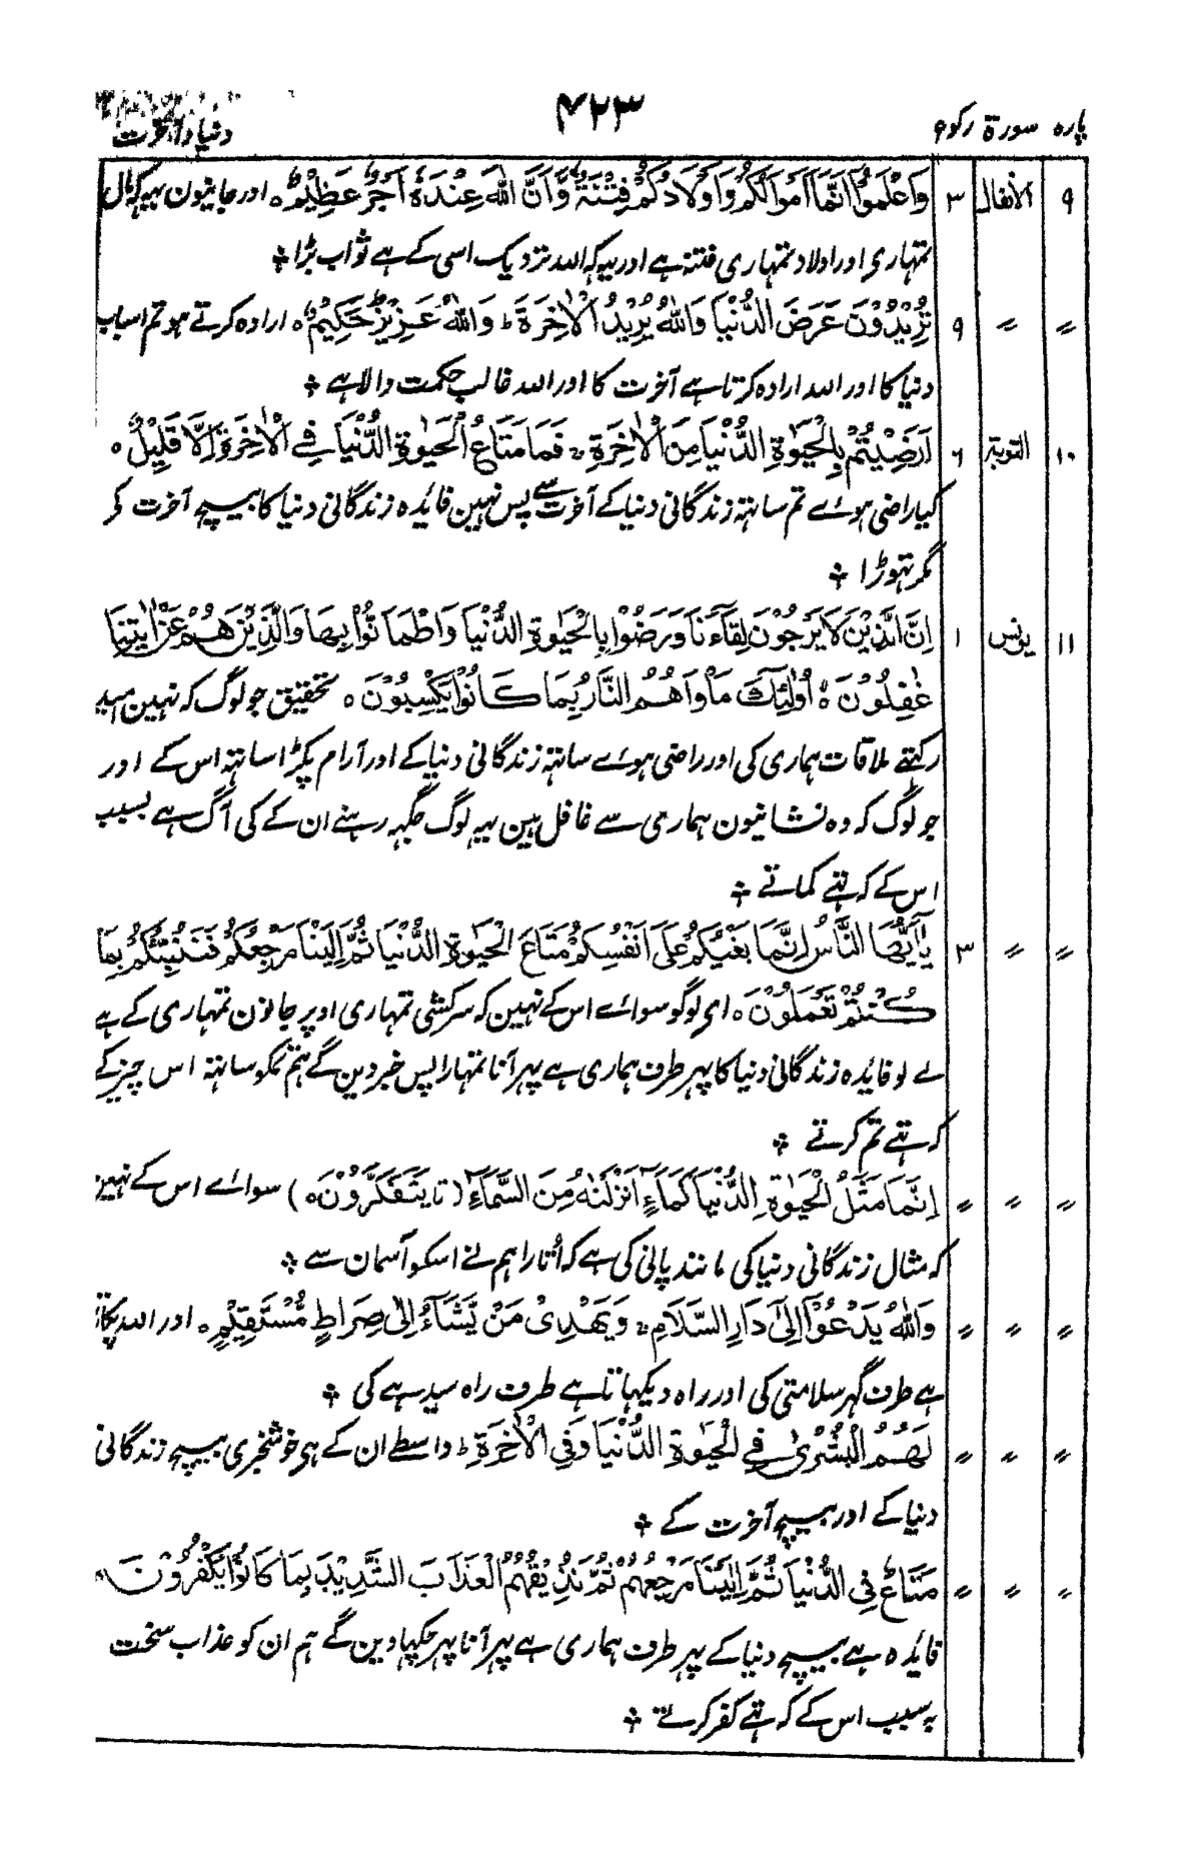 پارہ سورۃ رکوع ۴۲۳ دنیا و آخرت
۹ الانفال ۳ وَاعْلَمُوْٓا اَنَّمَآ اَمْوَالُكُمْ وَاَوْلَادُكُمْ فِتْنَةٌ وَّاَنَّ اللّٰهَ عِنْدَهٗٓ اَجْرٌ عَظِيْمٌ ہ اور جانیون یہہ کہ مال
تمہاری اور اولاد تمہاری فتنہ ہے اور یہ کہ اللہ نزدیک اسی کے ہے ثواب بڑا ÷
〃 〃 ۹ تُرِيْدُوْنَ عَرَضَ الدُّنْيَا وَاللّٰهُ يُرِيْدُ الْاٰخِرَةَ ط وَاللّٰهُ عَزِيْزٌ حَكِيْمٌ ہ ارادہ کرتے ہو تم اسباب
دنیا کا اور اللہ ارادہ کرتا ہے آخرت کا اور اللہ غالب حکمت والا ہے ÷
۱۰ التوبۃ ۶ اَرَضِيْتُمْ بِالْحَيٰوةِ الدُّنْيَا مِنَ الْاٰخِرَةِ ۚ فَمَا مَتَاعُ الْحَيٰوةِ الدُّنْيَا فِي الْاٰخِرَةِ اِلَّا قَلِيْلٌ ہ
کیا راضی ہوے تم ساتہہ زندگانی دنیا کے آخرت سے پس نہین فائدہ زندگانی دنیا کا بیچ آخرت کے
مگر تہوڑا ÷
۱۱ یونس ۱ اِنَّ الَّذِيْنَ لَا يَرْجُوْنَ لِقَآءَنَا وَرَضُوْا بِالْحَيٰوةِ الدُّنْيَا وَاطْمَاَنُّوْا بِهَا وَالَّذِيْنَ هُمْ عَنْ اٰيٰتِنَا
غٰفِلُوْنَ ہ اُولٰٓئِكَ مَاْوَاهُمُ النَّارُ بِمَا كَانُوْا يَكْسِبُوْنَ ہ تحقیق جو لوگ کہ نہین امید
رکہتے ملاقات ہماری کی اور راضی ہوے ساتہہ زندگانی دنیا کے اور آرام پکڑا ساتہہ اس کے اور
جو لوگ کہ وہ نشانیون ہماری سے غافل ہین یہہ لوگ جگہہ رہنے ان کے کی آگ ہے بسبب
اس کے کہ تہے کماتے ÷
〃 〃 ۳ يٰٓاَيُّهَا النَّاسُ اِنَّمَا بَغْيُكُمْ عَلٰٓى اَنْفُسِكُمْ مَتَاعَ الْحَيٰوةِ الدُّنْيَا ثُمَّ اِلَيْنَا مَرْجِعُكُمْ فَنُنَبِّئُكُمْ بِمَا
كُنْتُمْ تَعْمَلُوْنَ ہ ای لوگو سواے اس کے نہین کہ سرکشی تمہاری اوپر جانون تمہاری کے ہے
لے لو فایدہ زندگانی دنیا کا پہر طرف ہماری ہے پہر آنا تمہارا پس خبر دین گے ہم تمکو ساتہہ اس چیز کے
کہ تہے تم کرتے ÷
〃 〃 〃 اِنَّمَا مَثَلُ الْحَيٰوةِ الدُّنْيَا كَمَآءٍ اَنْزَلْنٰهُ مِنَ السَّمَآءِ (تا يَتَفَكَّرُوْنَ ہ) سواے اس کے نہین
کہ مثال زندگانی دنیا کی مانند پانی کی ہے کہ اُتارا ہم نے اسکو آسمان سے ÷
〃 〃 〃 وَاللّٰهُ يَدْعُوْٓا اِلٰى دَارِ السَّلَامِ ۚ وَيَهْدِيْ مَنْ يَّشَآءُ اِلٰى صِرَاطٍ مُّسْتَقِيْمٍ ہ اور اللہ پکارتا
ہے طرف گہر سلامتی کی اور راہ دیکہاتا ہے طرف راہ سیدہے کی ÷
〃 〃 〃 لَهُمُ الْبُشْرٰى فِي الْحَيٰوةِ الدُّنْيَا وَفِي الْاٰخِرَةِ ط واسطے ان کے ہی خوشخبری بیچ زندگانی
دنیا کے اور بیچ آخرت کے ÷
〃 〃 〃 مَتَاعٌ فِي الدُّنْيَا ثُمَّ اِلَيْنَا مَرْجِعُهُمْ ثُمَّ نُذِيْقُهُمُ الْعَذَابَ الشَّدِيْدَ بِمَا كَانُوْا يَكْفُرُوْنَ ہ
فایدہ ہے بیچ دنیا کے پہر طرف ہماری ہے پہر آنا پہر چکہاوین گے ہم ان کو عذاب سخت
بہ سبب اس کے کہ تہے کفر کرتے ÷